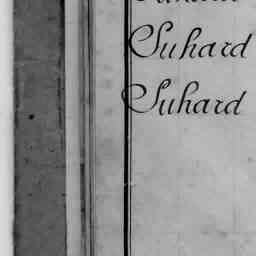 Suhard
Suhard